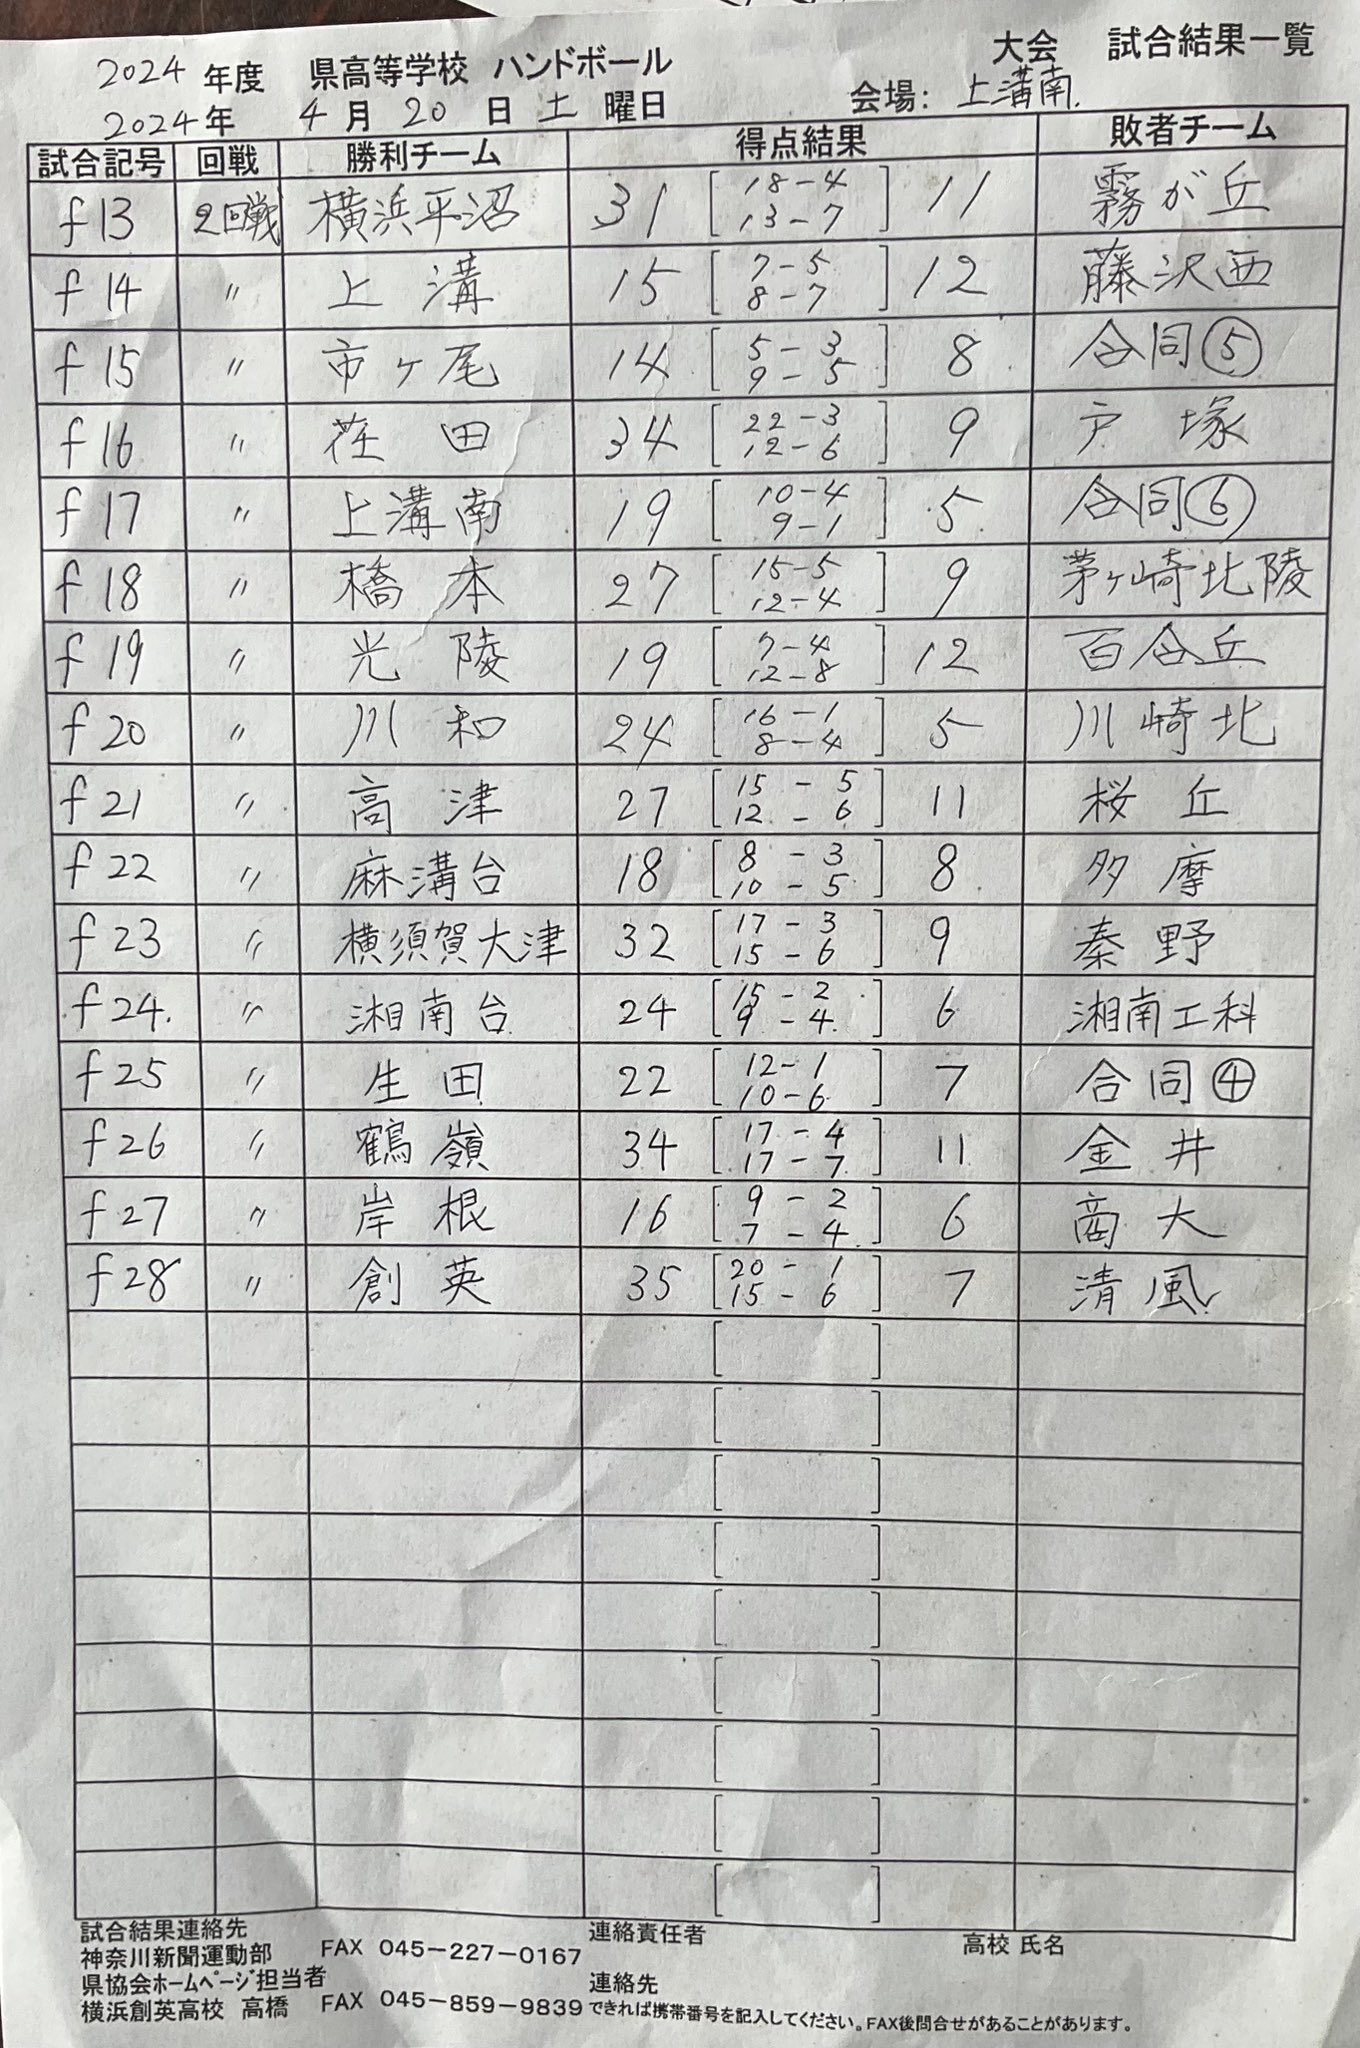 2024 年度 県高等学校 ハンドボール 大会 試合結果一覧
2024年 4月 20日 土曜日 会場: 上溝南.
試合記号 回戦 勝利チーム 得点結果 敗者チーム
f13 2回戦 横浜平沼 31 [18-4 13-7] 11 霧が丘
f14 〃 上溝 15 [7-5 8-7] 12 藤沢西
f15 〃 市ヶ尾 14 [5-3 9-5] 8 合同⑤
f16 〃 荏田 34 [22-3 12-6] 9 戸塚
f17 〃 上溝南 19 [10-4 9-1] 5 合同⑥
f18 〃 橋本 27 [15-5 12-4] 9 茅ヶ崎北陵
f19 〃 光陵 19 [7-4 12-8] 12 百合丘
f20 〃 川和 24 [16-1 8-4] 5 川崎北
f21 〃 高津 27 [15-5 12-6] 11 桜丘
f22 〃 麻溝台 18 [8-3 10-5] 8 多摩
f23 〃 横須賀大津 32 [17-3 15-6] 9 秦野
f24. 〃 湘南台 24 [15-2 9-4] 6 湘南工科
f25 〃 生田 22 [12-1 10-6] 7 合同④
f26 〃 鶴嶺 34 [17-4 17-7] 11 金井
f27 〃 岸根 16 [9-2 7-4] 6 商大
f28 〃 創英 35 [20-1 15-6] 7 清風
試合結果連絡先 連絡責任者 高校 氏名
神奈川新聞運動部 FAX 045-227-0167
県協会ホームページ担当者 連絡先
横浜創英高校 高橋 FAX 045-859-9839 できれば携帯番号を記入してください。FAX後問合せがあることがあります。